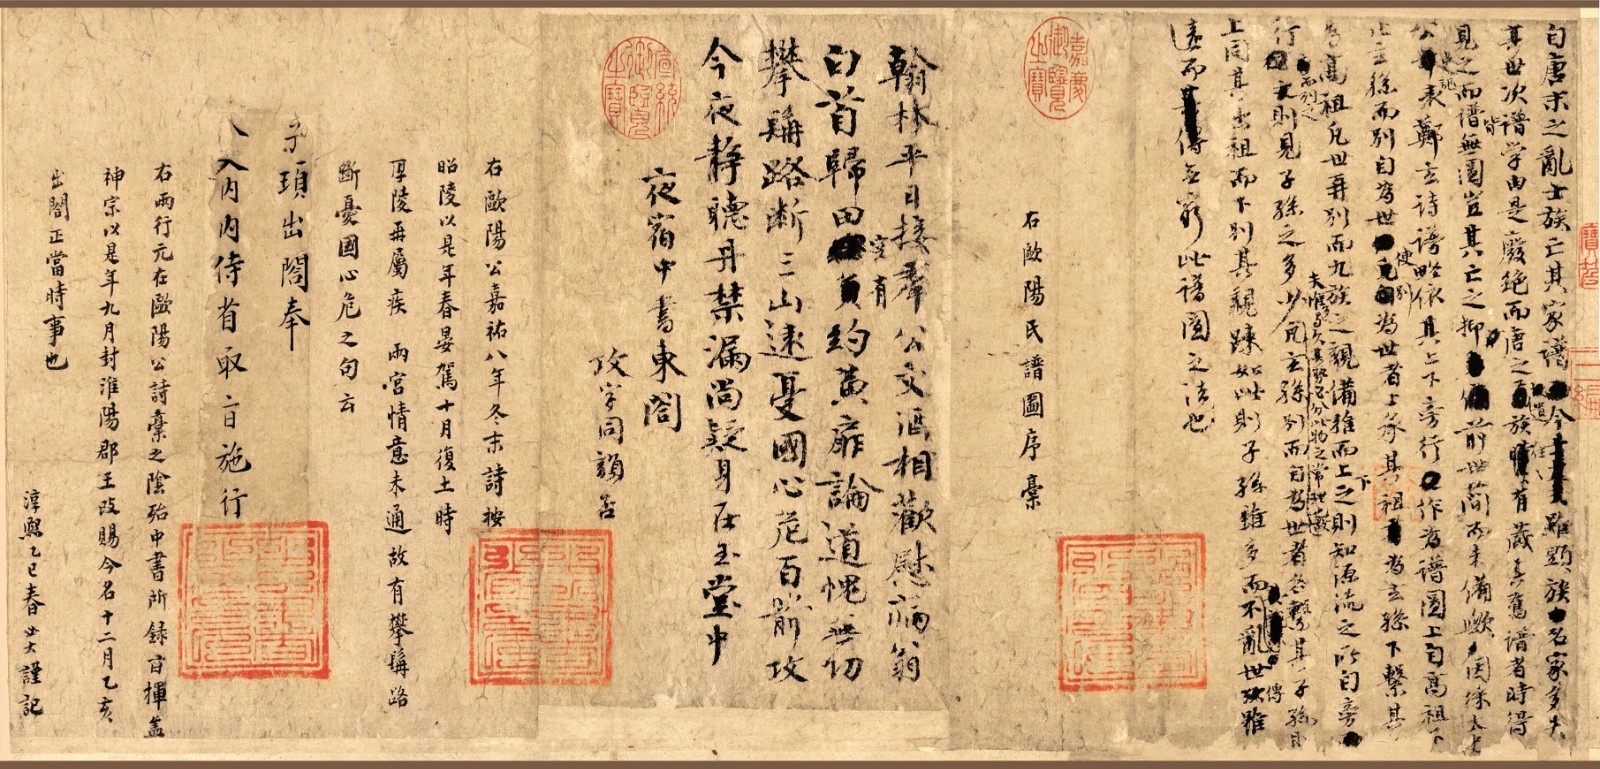 自唐末之亂士族亡其家譜今雖顯族名家多失
其世次譜學由是廢絕而唐之遺族往往有藏其舊譜者時得
見之而譜皆無圖豈其亡之抑前世簡而未備歟因採太史
公史記表鄭玄詩譜略依其上下旁行作為譜圖上自高祖下
止玄孫而別自為世使別為世者上承其祖為玄孫下繫其
孫為高祖凡世再別而九族之親備推而上下之則知源流之所自旁
行而列之則見子孫之多少夫惟多與久其勢必分此物之常理也凡玄孫別而自為世者各繫其子孫則
上同其出祖而下別其親疎如此則子孫雖多而不亂世傳雖
遠而無窮此譜圖之法也
右歐陽氏譜圖序稾
嘉慶御覽之寶
翰林平日接羣公文酒相歡慰病翁
白首歸田空有約黃扉論道愧無功
攀髯路斷三山遠憂國心危百箭攻
今夜靜聽丹禁漏尚疑身在玉堂中
夜宿中書東閤
攻字同韻否
宣統御覽之寶
右歐陽公嘉祐八年冬末詩按
昭陵以是年春晏駕十月復土時
厚陵再屬疾兩宮情意未通故有攀髯路
斷憂國心危之句云
頊出閤奉
入內內侍省取旨施行
右兩行元在歐陽公詩稾之陰殆中書所錄旨揮蓋
神宗以是年九月封淮陽郡王改賜今名十二月乙亥
出閤正當時事也
淳熙乙巳春必大謹記